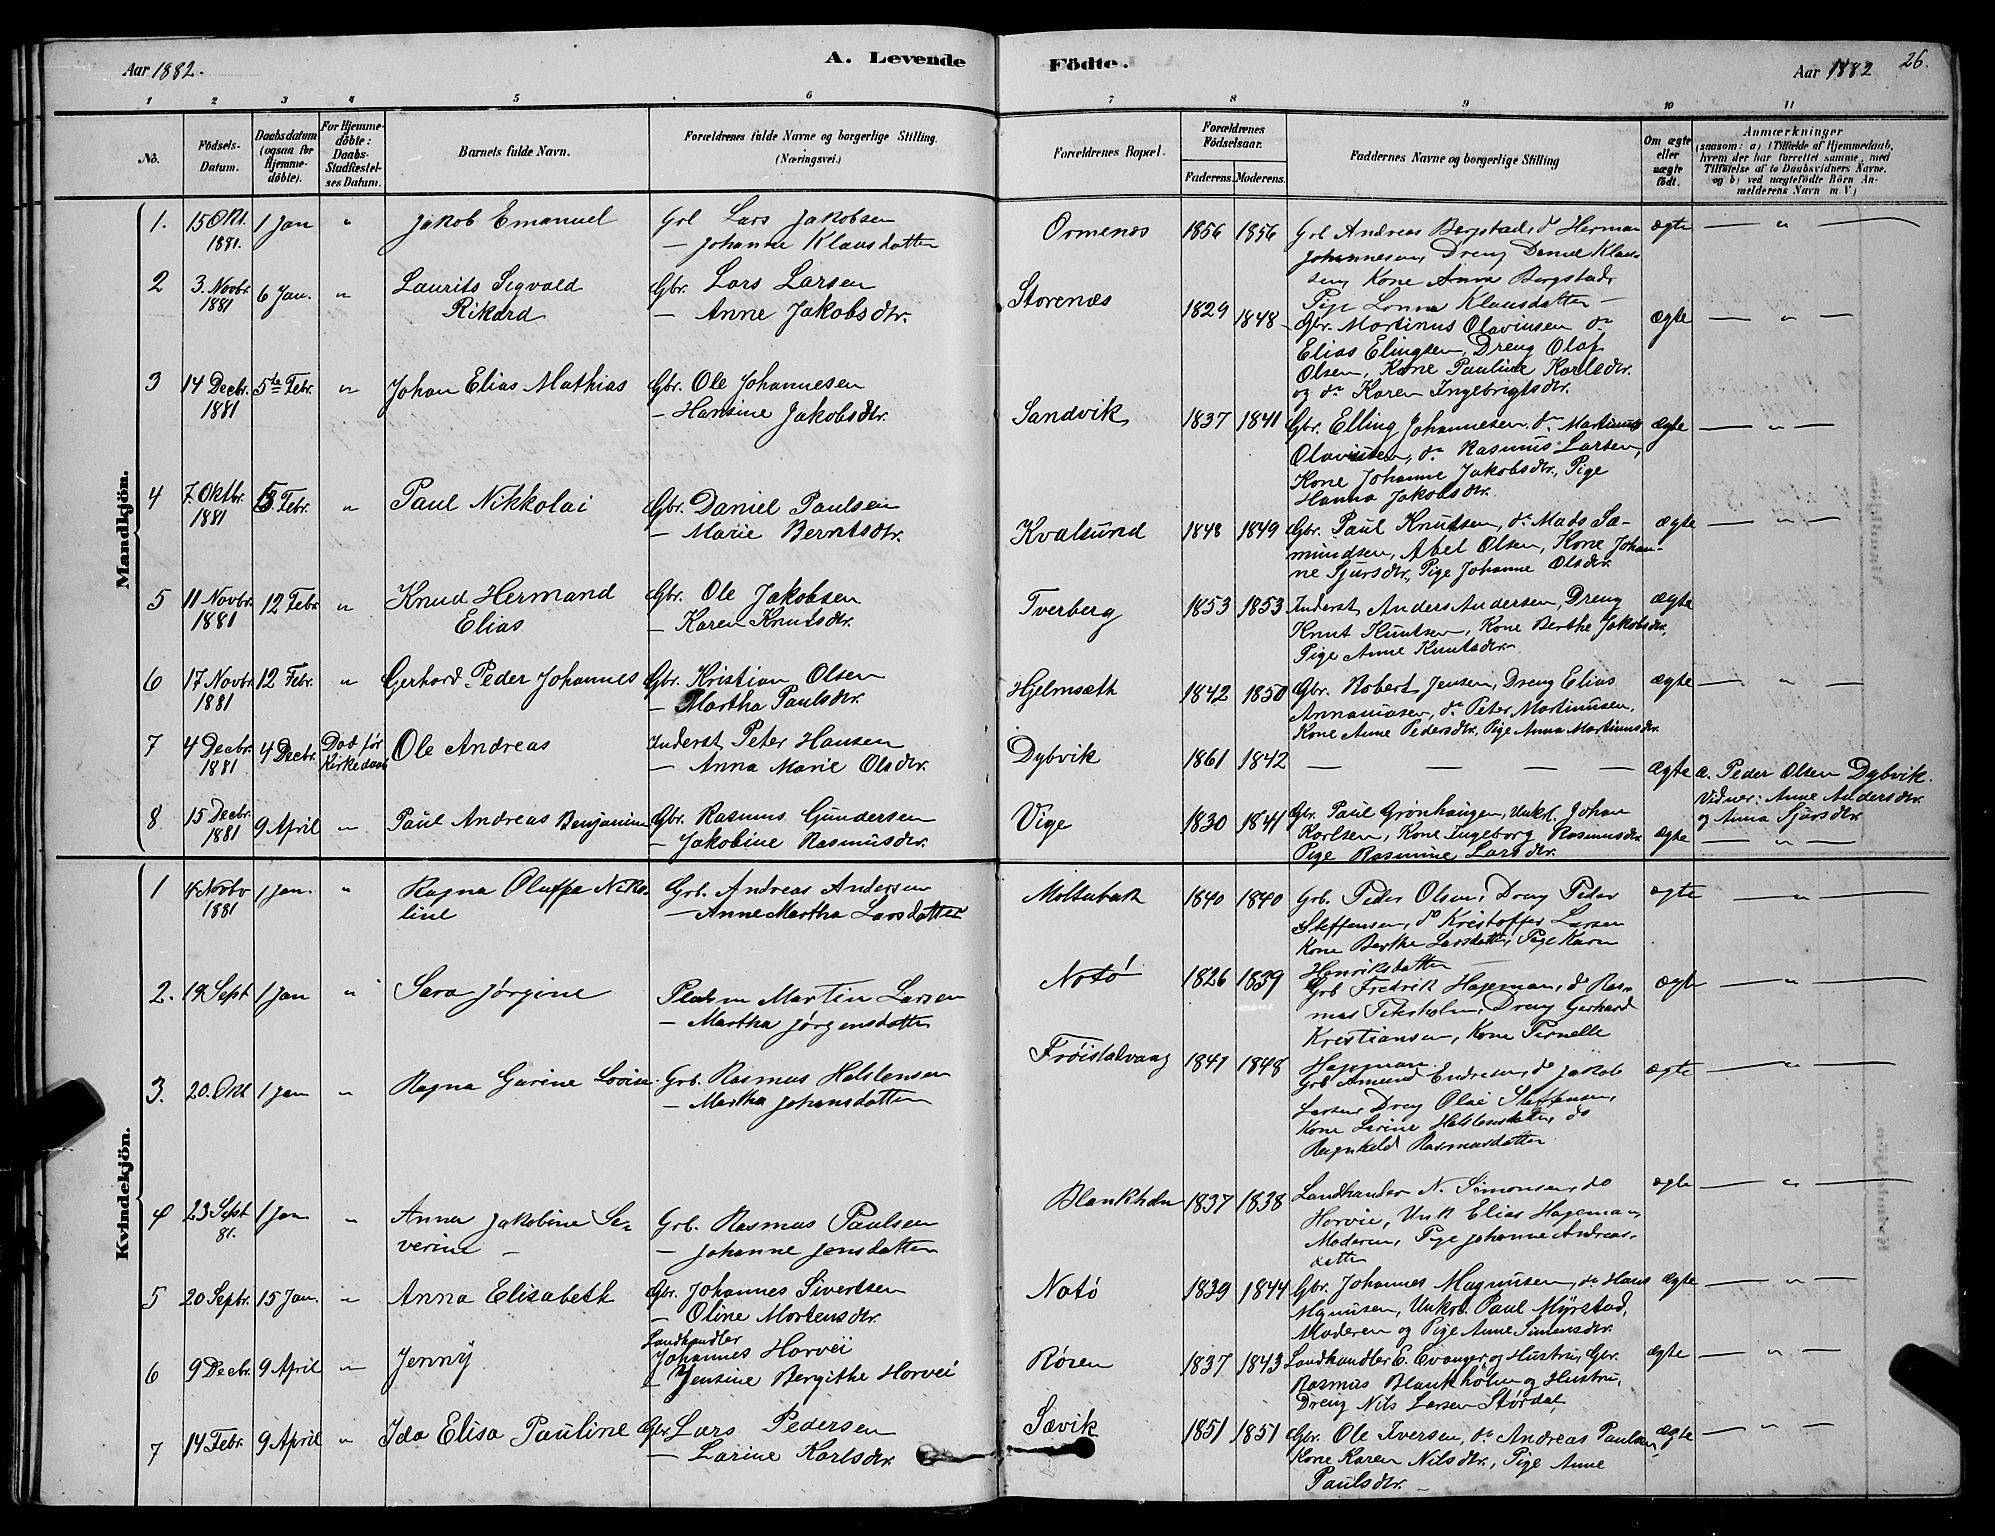 Aar 1882.
A. Levende
Födte.
Aar 1882
26.
1 2 3 4 5 6 7 8 9 10 11
No.
Födsels-
Datum.
Daabsdatum
(ogsaa for
Hjemme-
døbte).
For Hjemme-
døbte:
Daabs-
Stadfæstel-
ses Datum.
Barnets fulde Navn.
Forældrenes fulde Navne og borgerlige Stilling.
(Næringsvei.)
Forældrenes Bopæl.
Forældrenes
Fødselsaar.
Faderens. Moderens.
Faddernes Navne og borgerlige Stilling
Om ægte
eller
uægte
født.
Anmærkninger
(saasom: a) i Tilfælde af Hjemmedaab,
hvem der har forrettet samme, med
Tilføielse af to Daabsvidners Navne.
og b) ved uægtefødte Börn An-
melderens Navn m. V.)
Mandkjön.
1. 15 Okt. 1881. 1 Jan " Jakob Emanuel
Grb Lars Jakobsen
— Johanne Klausdatter
Ormenæs 1856 1856
Grb Andreas Bergstad, do Herman
Johannesen, Dreng Daniel Klau-
sen, Kone Anna Bergstad,
Pige Lonna Klausdatter —
ægte — " —
2 3. Novbr. 1881 6 Jan. " Laurits Sigvald
Rikard
Gbr. Lars Larsen
— Anne Jakobsdtr.
Storenæs 1829 1848
Gbr. Martinus Olavinsen do
Elias Elingsen, Dreng Olaf
Olsen, Kone Pauline Karlsdtr.
og do Karen Ingebrigtsdtr.
ægte — " —
3 14 Decbr. 1881 5te Febr. " Johan Elias Mathias
Gbr. Ole Johannesen
— Hansine Jakobsdtr.
Sandvik 1837 1841
Gbr. Elling Johannesen, do Martinus
Olavinsen, do Rasmus Larsen,
Kone Johanne Jakobsdtr., Pige
Hanna Jakobsdtr.
ægte — " —
4 7. Oktbr. 1881 5. Febr. " Paul Nikkolai
Gbr. Daniel Paulsen
— Marie Berntsdtr.
Kvalsund 1848 1849
Gbr. Paul Knutsen, do Mads Sæ-
mundsen, Abel Olsen, Kone Johan-
ne Sjursdtr., Pige Johanne Olsdtr.
ægte — " —
5 11 Novbr. 1881 12 Febr. " Knud Hermand
Elias
Gbr. Ole Jakobsen
— Karen Knutsdtr.
Tverberg 1853 1853
Inderst Anders Andersen, Dreng
Knut Knutsen, Kone Berthe Jakobsdtr,
Pige Anne Knutsdtr.
ægte — " —
6 17 Novbr. 1881 12 Febr. " Gerhard Peder Johannes
Gbr. Kristian Olsen
— Martha Paulsdtr.
Hjelmsæth 1842 1850
Gbr. Robert Jensen, Dreng Elias
Annaniasen, do Peter Martinusen,
Kone Anne Pedersdtr, Pige Anna Martinusdtr.
ægte — " —
7 4 Decbr. 1881 4 Decbr. Død før
Kirkedaab Ole Andreas
Inderst Peter Hansen
— Anna Marie Olsdtr.
Dybvik 1861 1842
— — — —
ægte a. Peder Olsen Dybvik.
Vidner: Anne Andersdtr.
og Anna Sjursdtr.
8 15 Decbr. 1881 9 April " Paul Andreas Benjamin
Gbr. Rasmus Gundersen
— Jakobine Rasmusdtr.
Vige 1830 1841
Gbr. Paul Grønhaugen, Unkrl. Johan
Karlsen, Kone Ingeborg Rasmusdtr.
Pige Rasmine Larsdtr.
ægte — " —
Kvindekjön.
1 4 Novbr 1881 1 Jan. " Ragna Oluffa Niko-
line
Grb. Andreas Andersen
— Anne Martha Larsdatter
Moltubak 1840 1840
Grb. Peder Olsen, Dreng Peder
Steffensen, do Kristoffer Larsen
Kone Berthe Larsdatter, Pige Karn
Henriksdatter —
ægte — " —
2. 19 Sept 1 Jan " Sara Jørgine
Pladsm Martin Larsen
— Martha Jørgensdatter
Notø 1826 1839
Grb Fredrik Hageman, do Ras-
mus Petersholm, Dreng Gerhard
Kristiansen, Kone Pernelle
Hageman
ægte — " —
3. 20. Okt 1 Jan " Ragna Garine Lovise
Grb. Rasmus Halstensen
— Martha Johansdatter
Frøistadvaag 1847 1848
Grb Amund Endresen, do Jakob
Larsen, Dreng Olai Steffensen,
Kone Larine Halstensdatter, do
Ragnhild Rasmusdatter
ægte — " —
4 23 Sept 81. 1 Jan " Anna Jakobine Se-
verine —
Grb. Rasmus Paulsen
— Johanne Jensdatter
Blankholm 1837 1838
Landhandler N. Simonsen, do
Horvie, Unk Elias Hageman,
Moderen, Pige Johanne Andreas-
datter
ægte — " —
5 20 Septbr. 15 Jan. " Anna Elisabeth
Gbr. Johannes Sivertsen
— Oline Mortensdtr.
Notø 1839 1844
Gbr. Johannes Magnusen, do Hans
Magnusen, Unkrl. Paul Myrstad,
Moderen og Pige Anne Simensdtr.
ægte — " —
6 9 Decbr. 9 April " Jenny
Landhandler
Johannes Horvei
— Jensine Bergithe Horvei
Røren 1837 1843
Landhandler E. Evanger og Hustru, Gbr.
Rasmus Blankholm og Hustru,
Dreng Nils Larsen Størdal,
ægte — " —
7 14 Febr. 9 April " Ida Elisa Pauline
Gbr. Lars Pedersen
— Larine Karlsdtr.
Sævik 1851 1851
Gbr. Ole Iversen, do Andreas Paulsen,
Kone Karen Nilsdtr., Pige Anne
Paulsdtr. —
ægte — " —